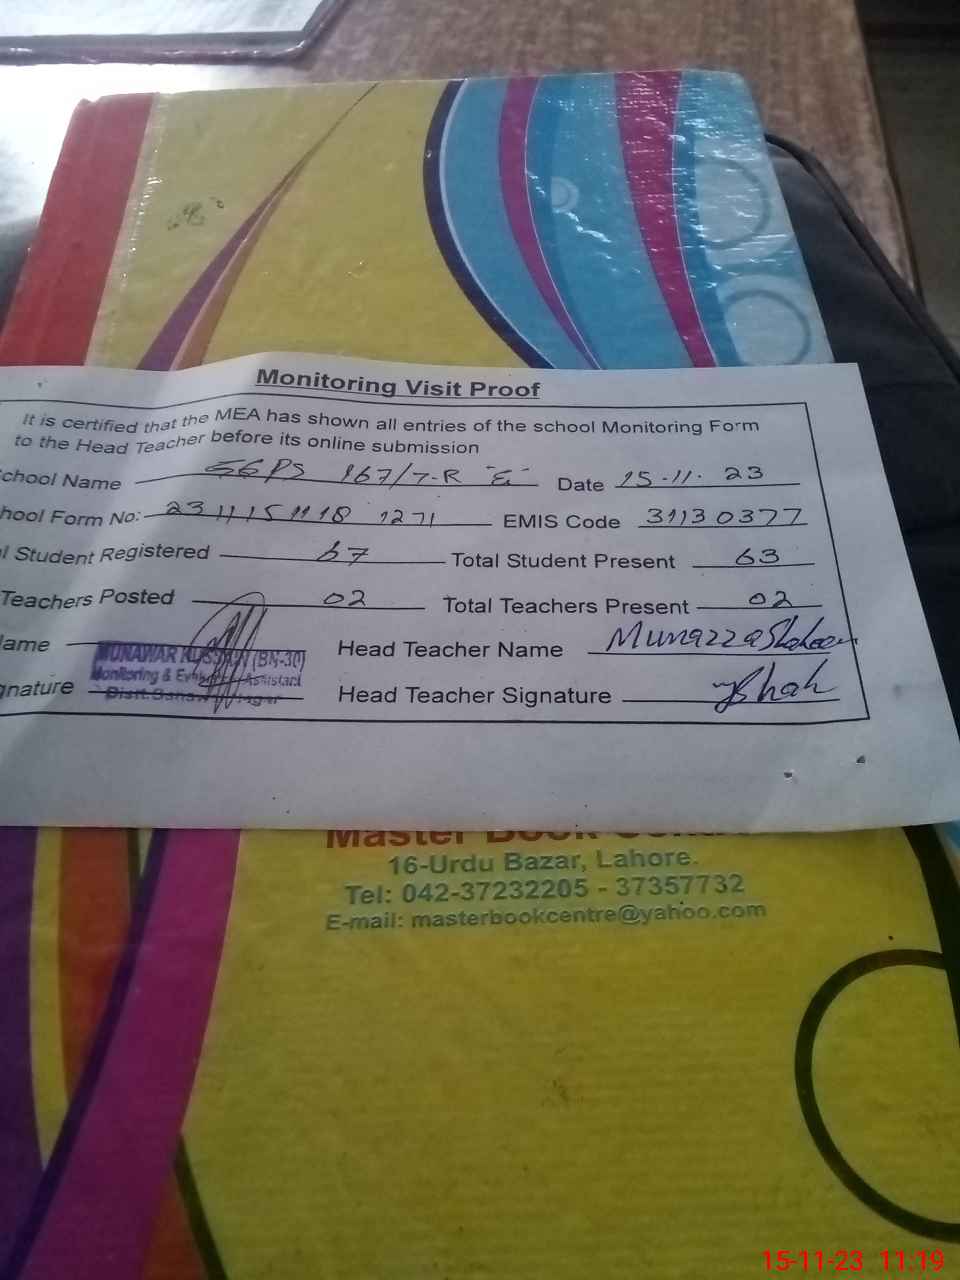 Monitoring Visit Proof
It is certified that the MEA has shown all entries of the school Monitoring Form
to the Head Teacher before its online submission
chool Name GGPS 167/7-R "E" Date 15-11-23
hool Form No: 23 11 15 11 18 1271 EMIS Code 31130377
l Student Registered 67 Total Student Present 63
Teachers Posted 02 Total Teachers Present 02
ame MUNAWAR HUSSAIN (BN-30) Head Teacher Name Munazza Shaheen
Monitoring & Evaluation Assistant
gnature Distt. Head Teacher Signature
Master Book
16-Urdu Bazar, Lahore.
Tel: 042-37232205 - 37357732
E-mail: masterbookcentre@yahoo.com
15-11-23 11:19